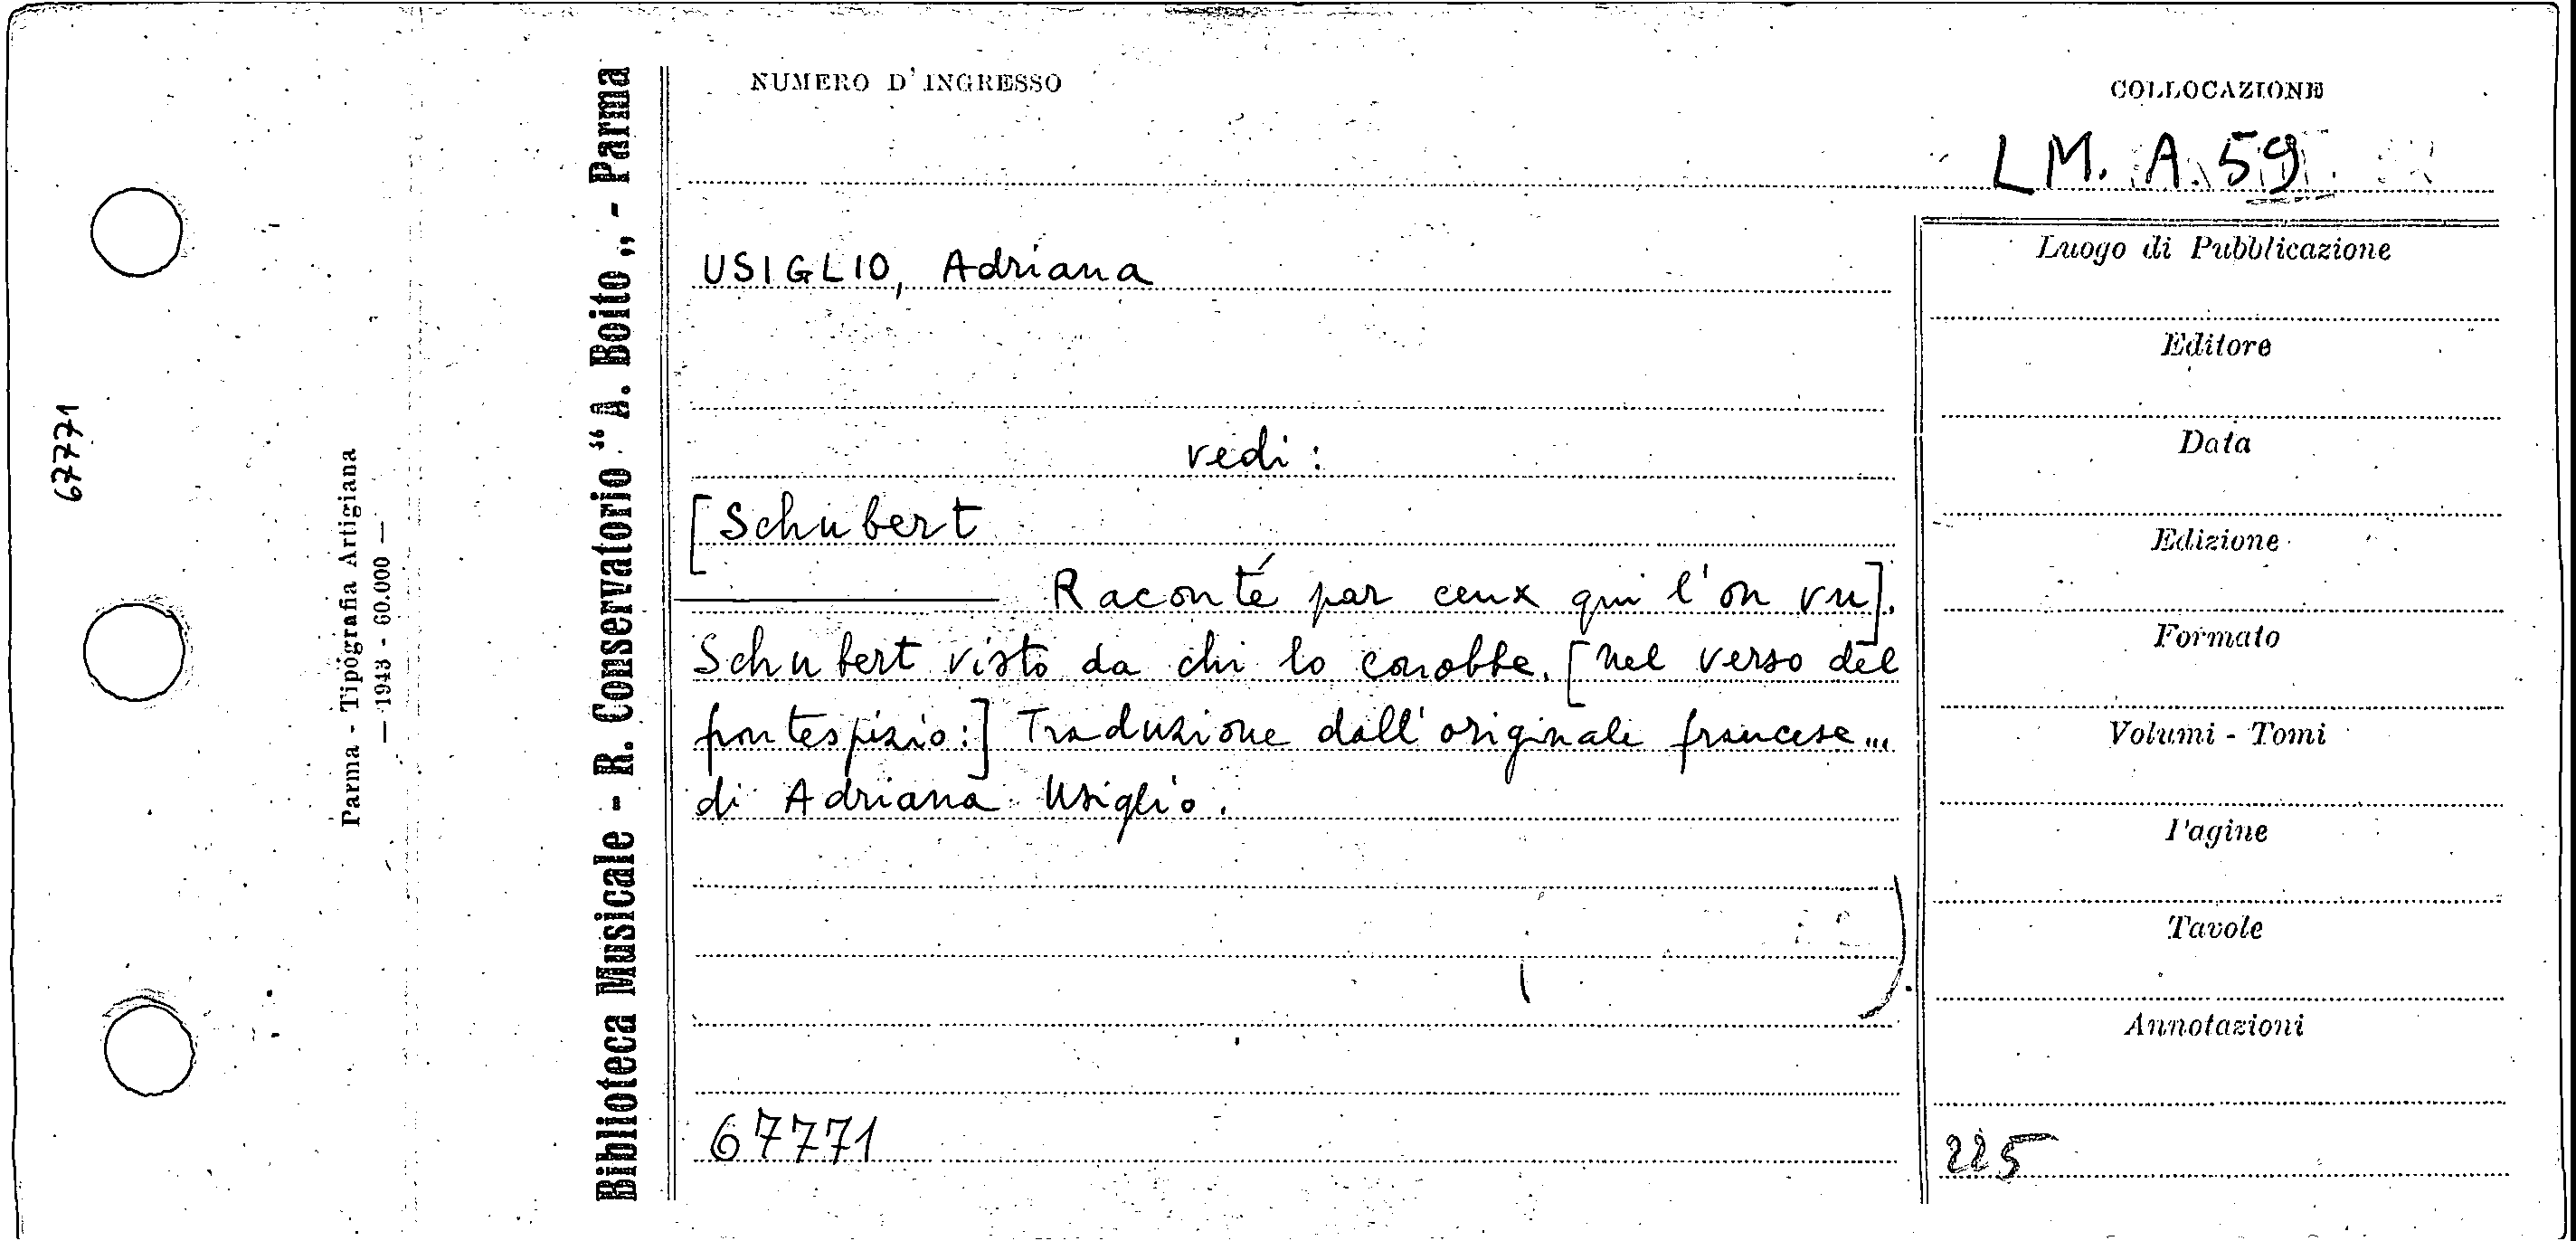 67771
Parma - Tipografia Artigiana
— 1943 - 60.000 —
Biblioteca Musicale - R. Conservatorio “A. Boito„ - Parma
NUMERO D'INGRESSO
COLLOCAZIONE
LM. A. 59
USIGLIO, Adriana
vedi:
[Schubert
——— Raconté par ceux qui l'on vu].
Schubert visto da chi lo conobbe. [nel verso del
frontespizio:] Traduzione dall'originale francese...
di Adriana Usiglio.
67771
Luogo di Pubblicazione
Editore
Data
Edizione
Formato
Volumi - Tomi
Pagine
Tavole
Annotazioni
225